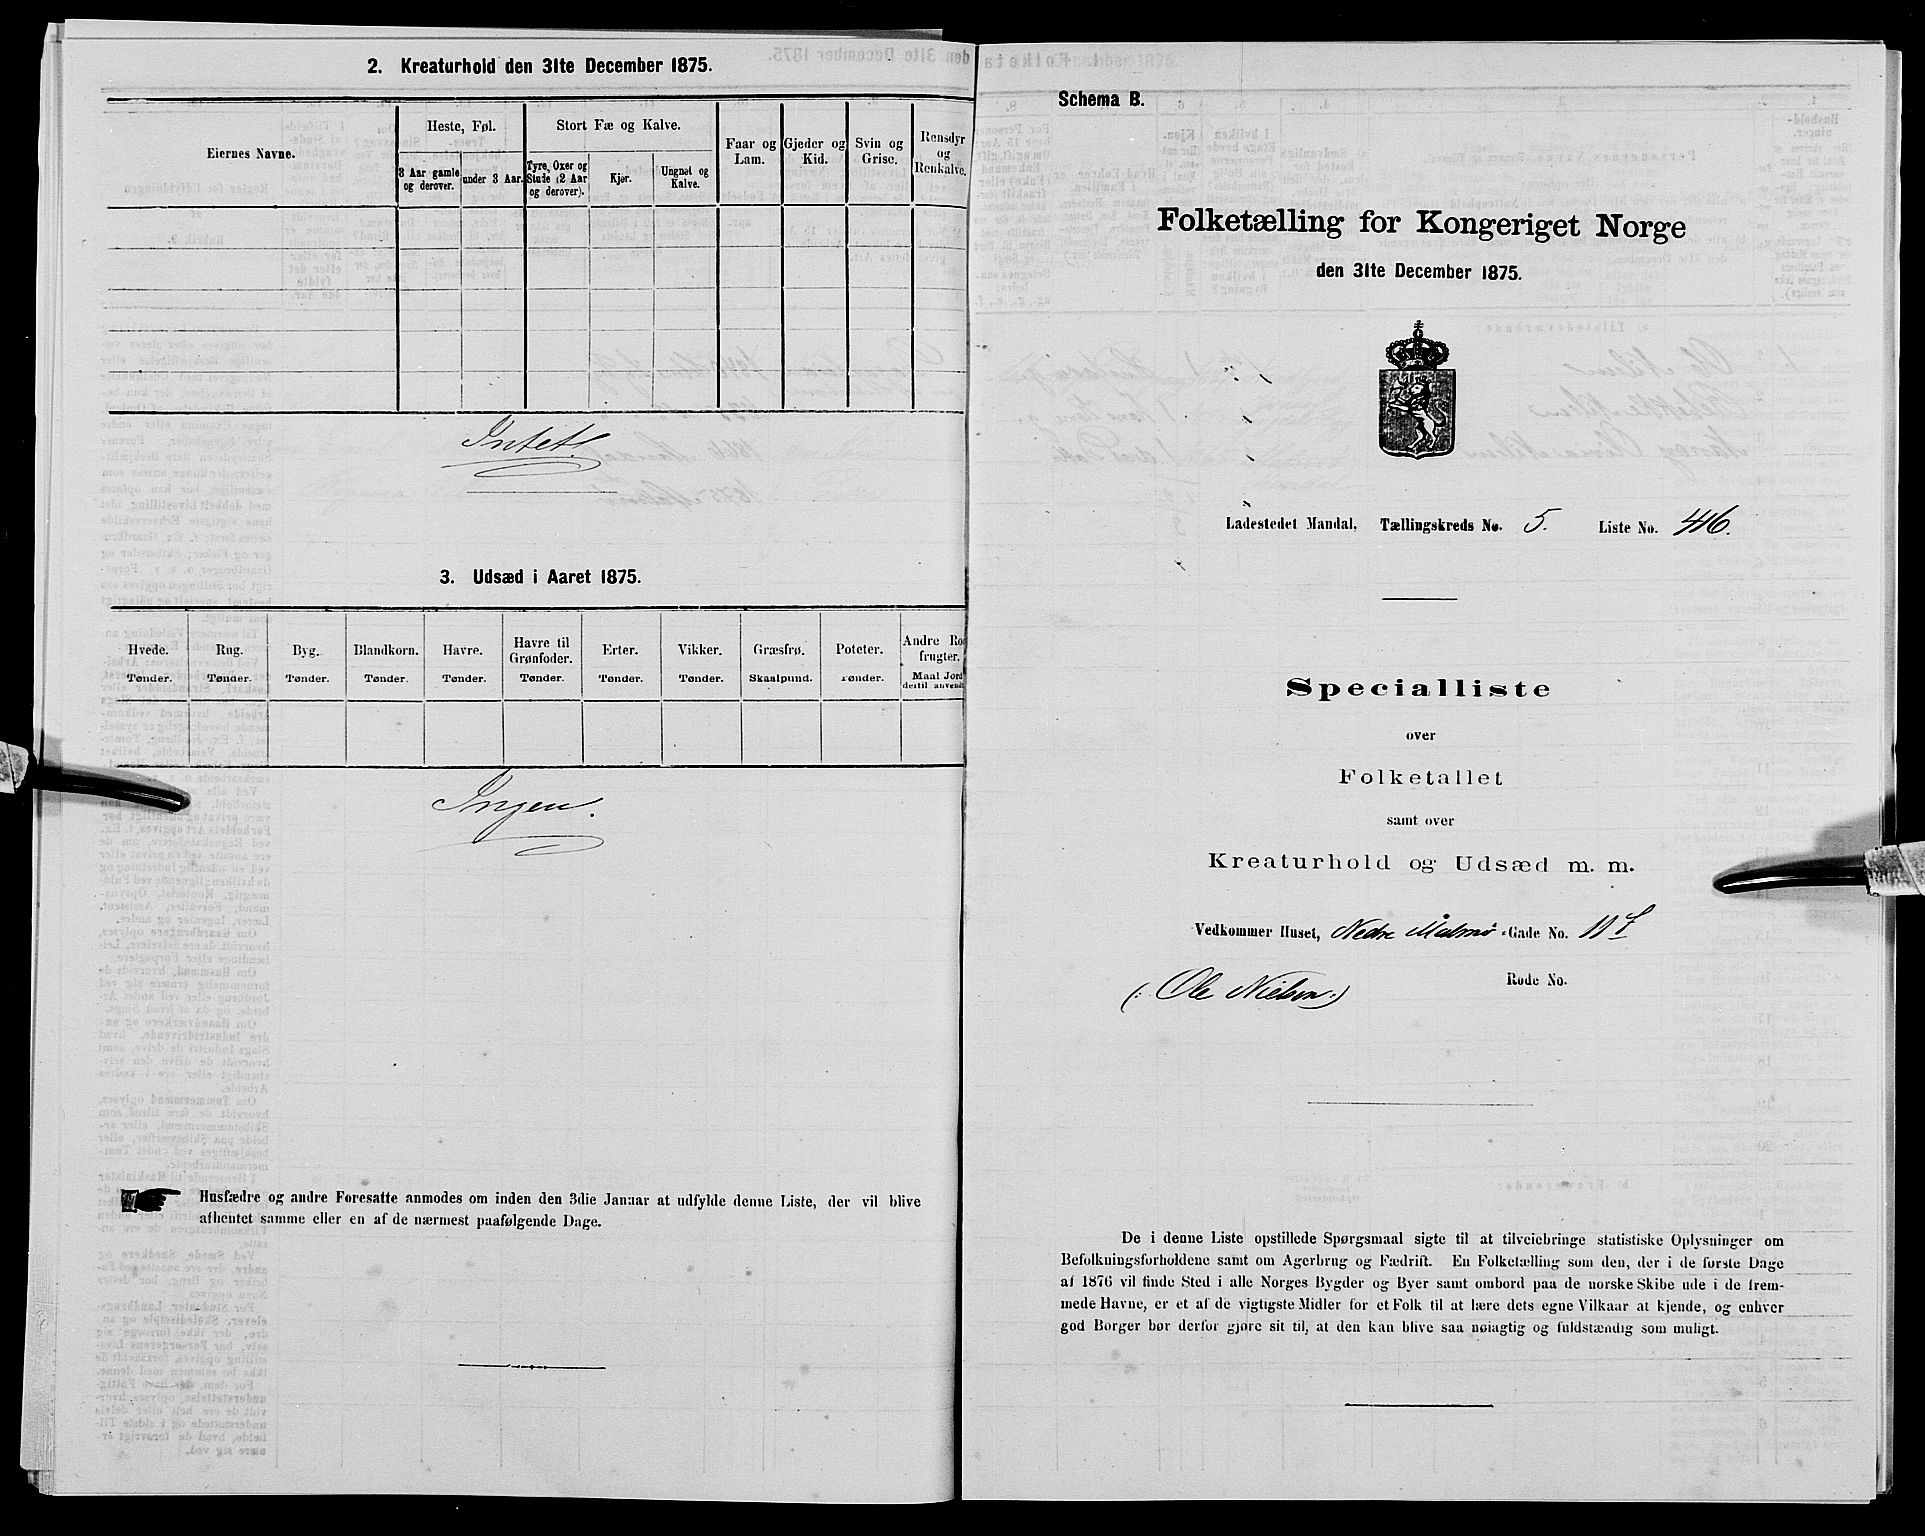 2. Kreaturhold den 31te December 1875.
Eiernes Navne.
Heste, Føl.
Stort Fæ og Kalve.
Faar og Lam.
Gjeder og Kid.
Svin og Grise.
Rensdyr og Renkalve.
3 Aar gamle og derover.
under 3 Aar.
Tyre, Oxer og Stude (2 Aar og derover).
Kjør.
Ungnøt og Kalve.
Intet.
3. Udsæd i Aaret 1875.
Hvede. Rug. Byg. Blandkorn. Havre. Havre til Grønfoder. Erter. Vikker. Græsfrø. Poteter. Andre Ro frugter.
Tønder. Tønder. Tønder. Tønder. Tønder. Tønder. Tønder. Tønder. Skaalpund. Tønder. Maal Jord dertil anvend
Ingen.
Husfædre og andre Foresatte anmodes om inden den 3die Januar at udfylde denne Liste, der vil blive
afhentet samme eller en af de nærmest paafølgende Dage.
Schema B.
Folketælling for Kongeriget Norge
den 31te December 1875.
Ladestedet Mandal, Tællingskreds No. 5. Liste No. 46.
Specialliste
over
Folketallet
samt over
Kreaturhold og Udsæd m. m.
Vedkommer Huset, Nedre Malmø Gade No. 11
(: Ole Nielsen :)
Rode No.
De i denne Liste opstillede Spørgsmaal sigte til at tilveiebringe statistiske Oplysninger om
Befolkningsforholdene samt om Agerbrug og Fædrift. En Folketælling som den, der i de første Dage
af 1876 vil finde Sted i alle Norges Bygder og Byer samt ombord paa de norske Skibe ude i de frem-
mede Havne, er et af de vigtigste Midler for et Folk til at lære dets egne Vilkaar at kjende, og enhver
god Borger bør derfor gjøre sit til, at den kan blive saa nøiagtig og fuldstændig som muligt.